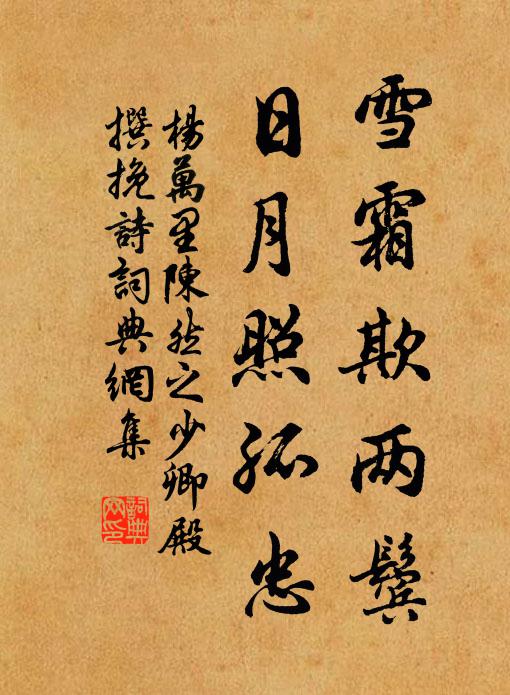 雪霜欺两鬓
日月照孤忠
楊萬里陳然之少卿殿
撰挽詩詞典網集
詞典
网印